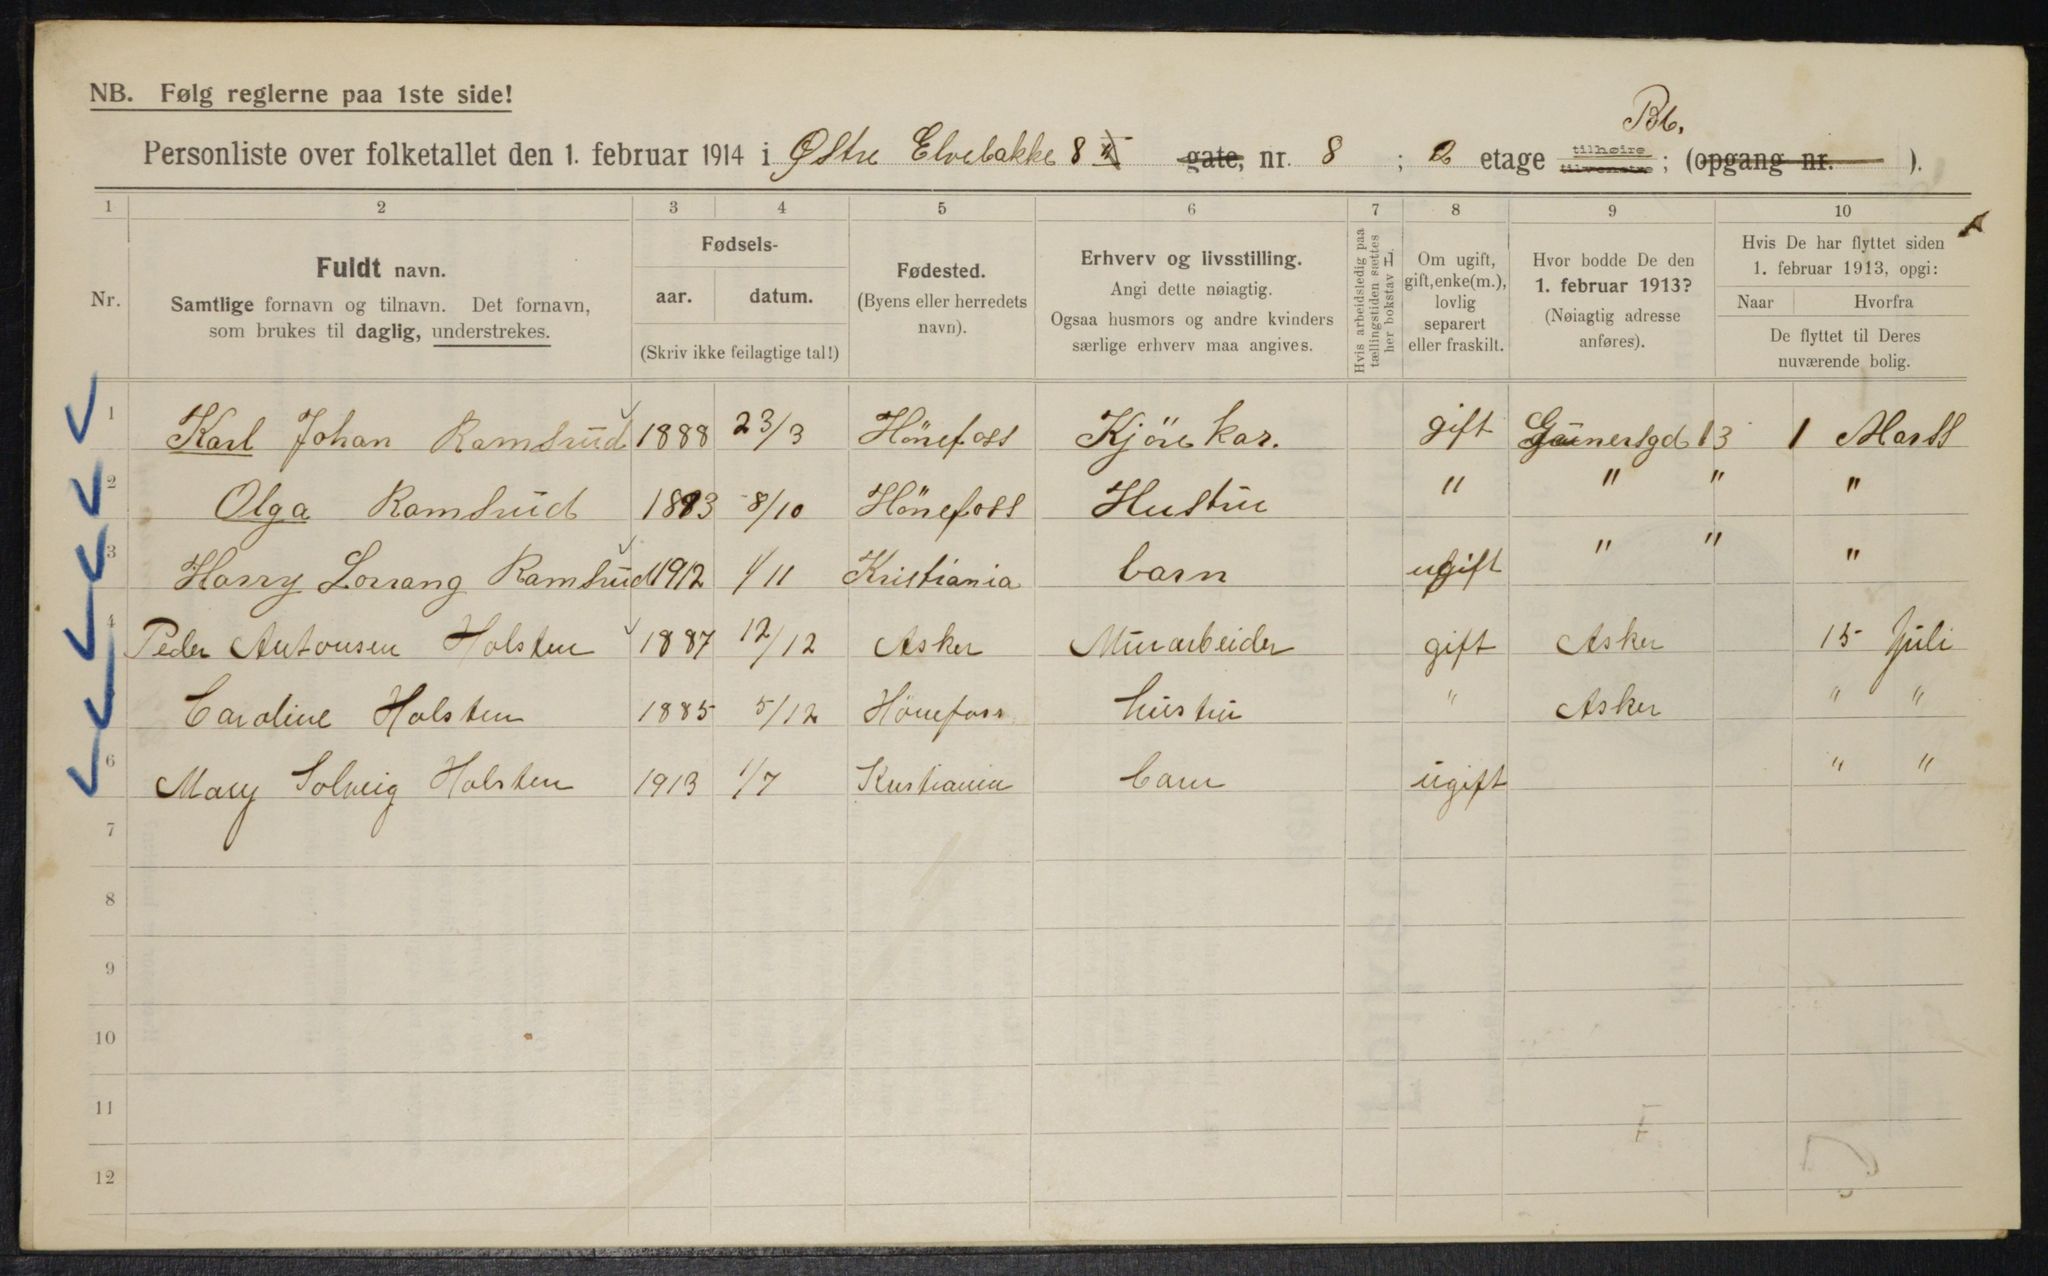 NB. Følg reglerne paa 1ste side!
Bb.
Personliste over folketallet den 1. februar 1914 i Østre Elvebakke 8 gate, nr. 8 ; 2 etage tilhøire tilvenstre ; (opgang nr. ).
1 2 3 4 5 6 7 8 9 10
Nr.
Fuldt navn.
Samtlige fornavn og tilnavn. Det fornavn,
som brukes til daglig, understrekes.
Fødsels-
aar. datum.
(Skriv ikke feilagtige tal!)
Fødested.
(Byens eller herredets
navn).
Erhverv og livsstilling.
Angi dette nøiagtig.
Ogsaa husmors og andre kvinders
særlige erhverv maa angives.
Hvis arbeidsledig paa
tællingstiden sættes
her bokstav L.
Om ugift,
gift, enke(m.),
lovlig
separert
eller fraskilt.
Hvor bodde De den
1. februar 1913?
(Nøiagtig adresse
anføres).
Hvis De har flyttet siden
1. februar 1913, opgi:
Naar Hvorfra
De flyttet til Deres
nuværende bolig.
1 Karl Johan Ramsrud 1888 23/3 Hönefoss Kjörekar. gift Günersgd 13 1 Marss
2 Olga Ramsrud 1883 8/10 Hönefoss Hustru " " " "
3 Harry Lorrang Ramsrud 1912 1/11 Kristiania barn ugift " " "
4 Peder Antonsen Holsten 1887 12/12 Asker Murarbeider gift Asker 15 Juli
Caroline Holsten 1885 5/12 Hönefoss hustru " Asker " "
6 Mary Solveig Holsten 1913 1/7 Kristiania barn ugift " "
7
8
9
10
11
12